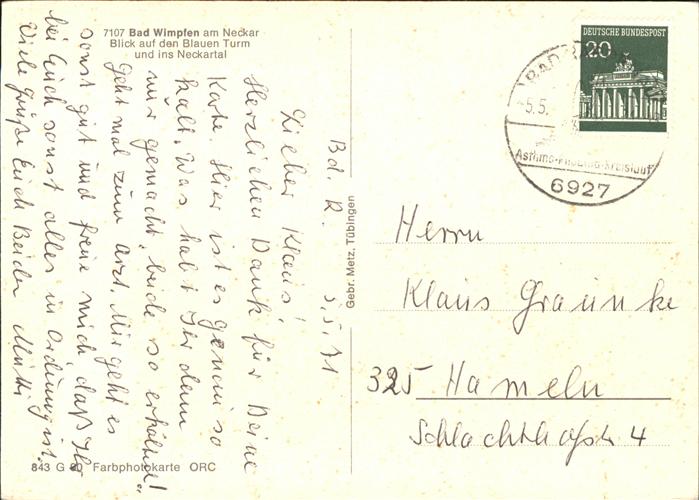 7107 Bad Wimpfen am Neckar
Blick auf den Blauen Turm
und ins Neckartal
Bd. R. 5.5.71
Lieber Klaus!
Herzlichen Dank für Deine
Karte. Hier ist es genau so
kalt. Was habt Ihr denn
nur gemacht, beide so erkältet!
Geht mal zum Arzt. Mir geht es
sonst gut und freue mich, daß
bei Euch sonst alles in Ordnung ist.
Viele Grüße Euch Beiden Mutti
843 G 80 Farbphotokarte ORC
Gebr. Metz, Tübingen
DEUTSCHE BUNDESPOST
20
BAD
5.5.
Asthma- -Kreislauf
6927
Herrn
Klaus Graunke
325 Hameln
Schlachthofstr. 4